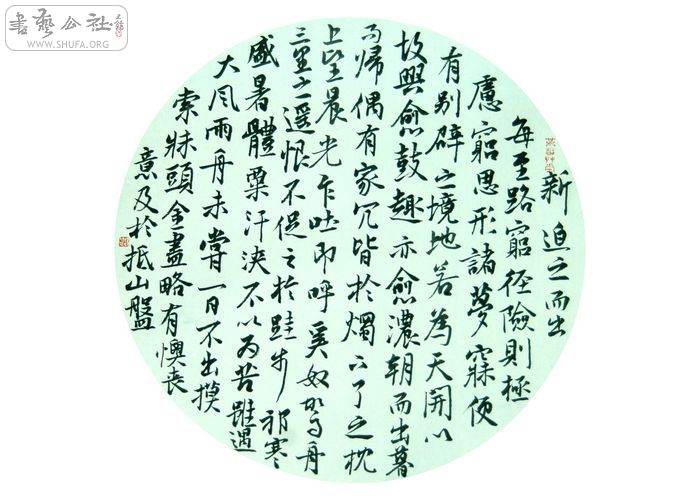 書藝公社
WWW.SHUFA.ORG
新迫之而出
每至路窮徑險則極
慮窮思形諸夢寐便
有别辟之境地若為天開以
故興愈鼓趣亦愈濃朝而出暮
而歸偶有家冗皆於燭下了之枕
上望晨光乍吐即呼奚奴駕舟
三里之遥恨不促之於跬步祁寒
盛暑體粟汗浹不以为苦雖遇
大風雨舟未嘗一日不出摸
索牀頭金盡略有懊喪
意及於抵山盤